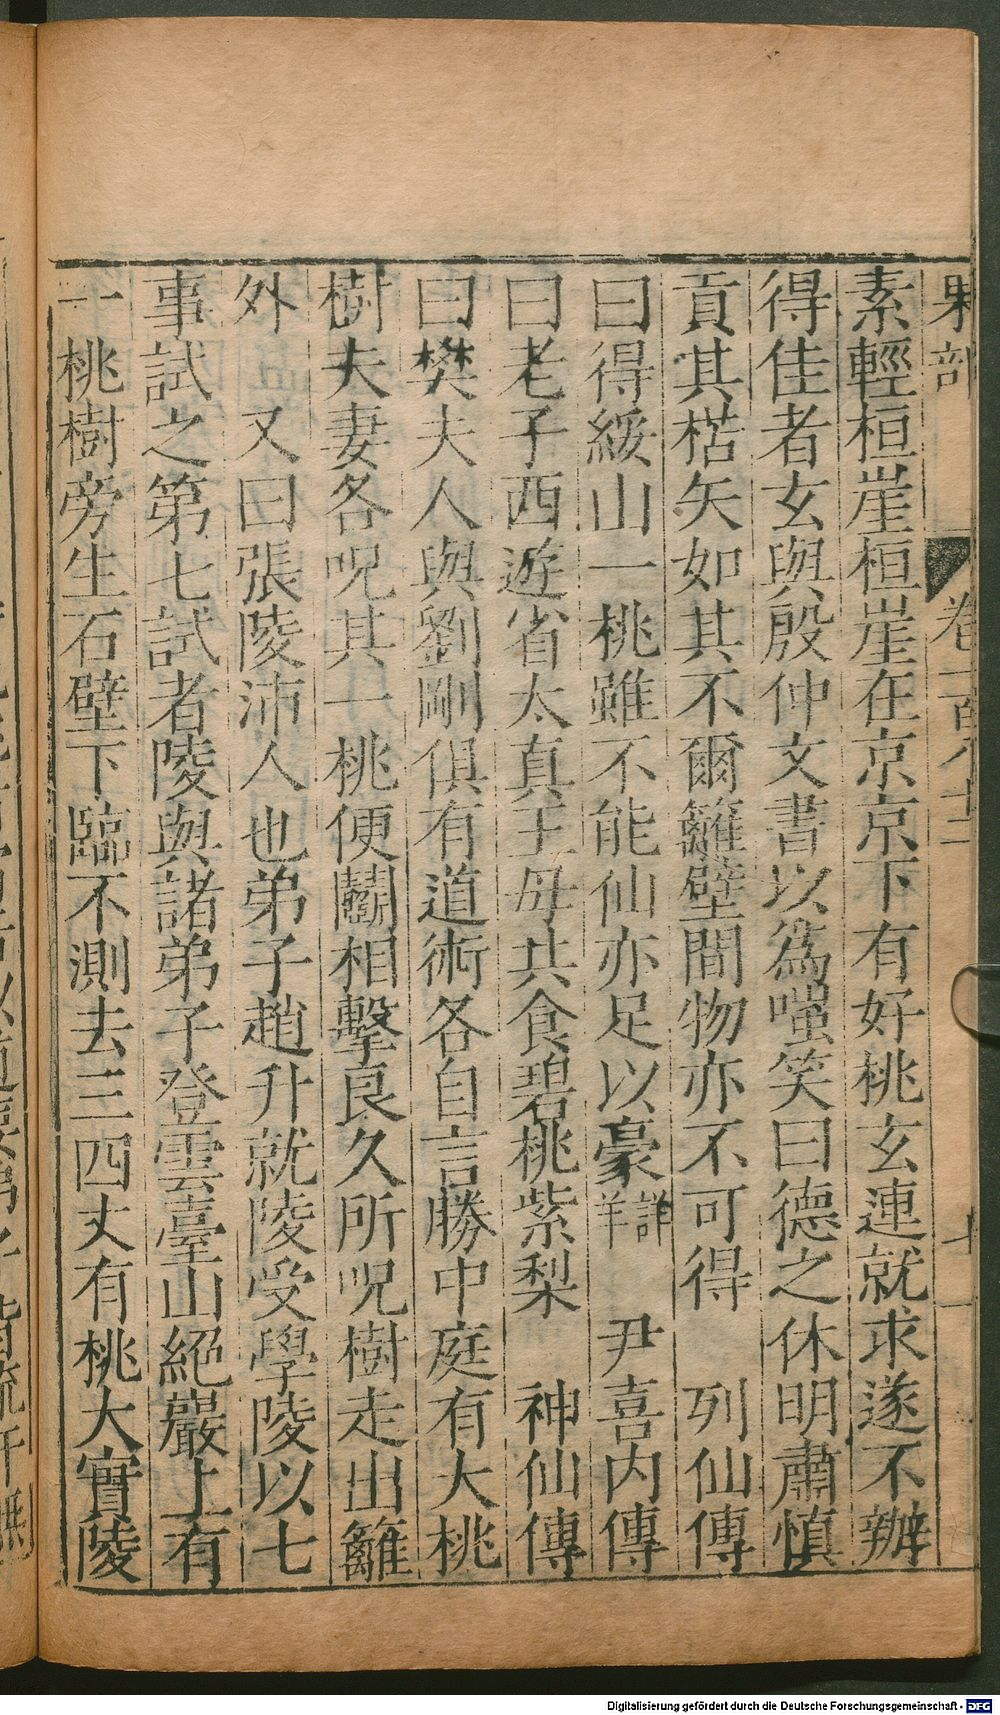 果部 卷一百八十二 十一
素輕桓崖桓崖在京京下有好桃玄連就求遂不辦
得佳者玄與殷仲文書以為嗤笑曰德之休明肅慎
貢其楛矢如其不爾籬壁間物亦不可得 列仙傳
曰得綏山一桃雖不能仙亦足以豪詳羊 尹喜内傳
曰老子西遊省太真王母共食碧桃紫梨 神仙傳
曰樊夫人與劉剛俱有道術各自言勝中庭有大桃
樹夫妻各呪其一桃便鬭相擊良久所呪樹走出籬
外 又曰張陵沛人也弟子趙升就陵受學陵以七
事試之第七試者陵與諸弟子登雲臺山絕巖上有
一桃樹旁生石壁下臨不測去三四丈有桃大實陵
Digitalisierung gefördert durch die Deutsche Forschungsgemeinschaft - DFG